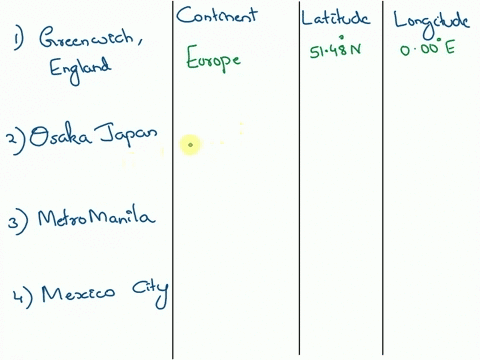 Continent Latitude Longitude
1) Greenwich,
England Europe 51.48°N 0.00°E
2) Osaka Japan
3) Metro Manila
4) Mexico City